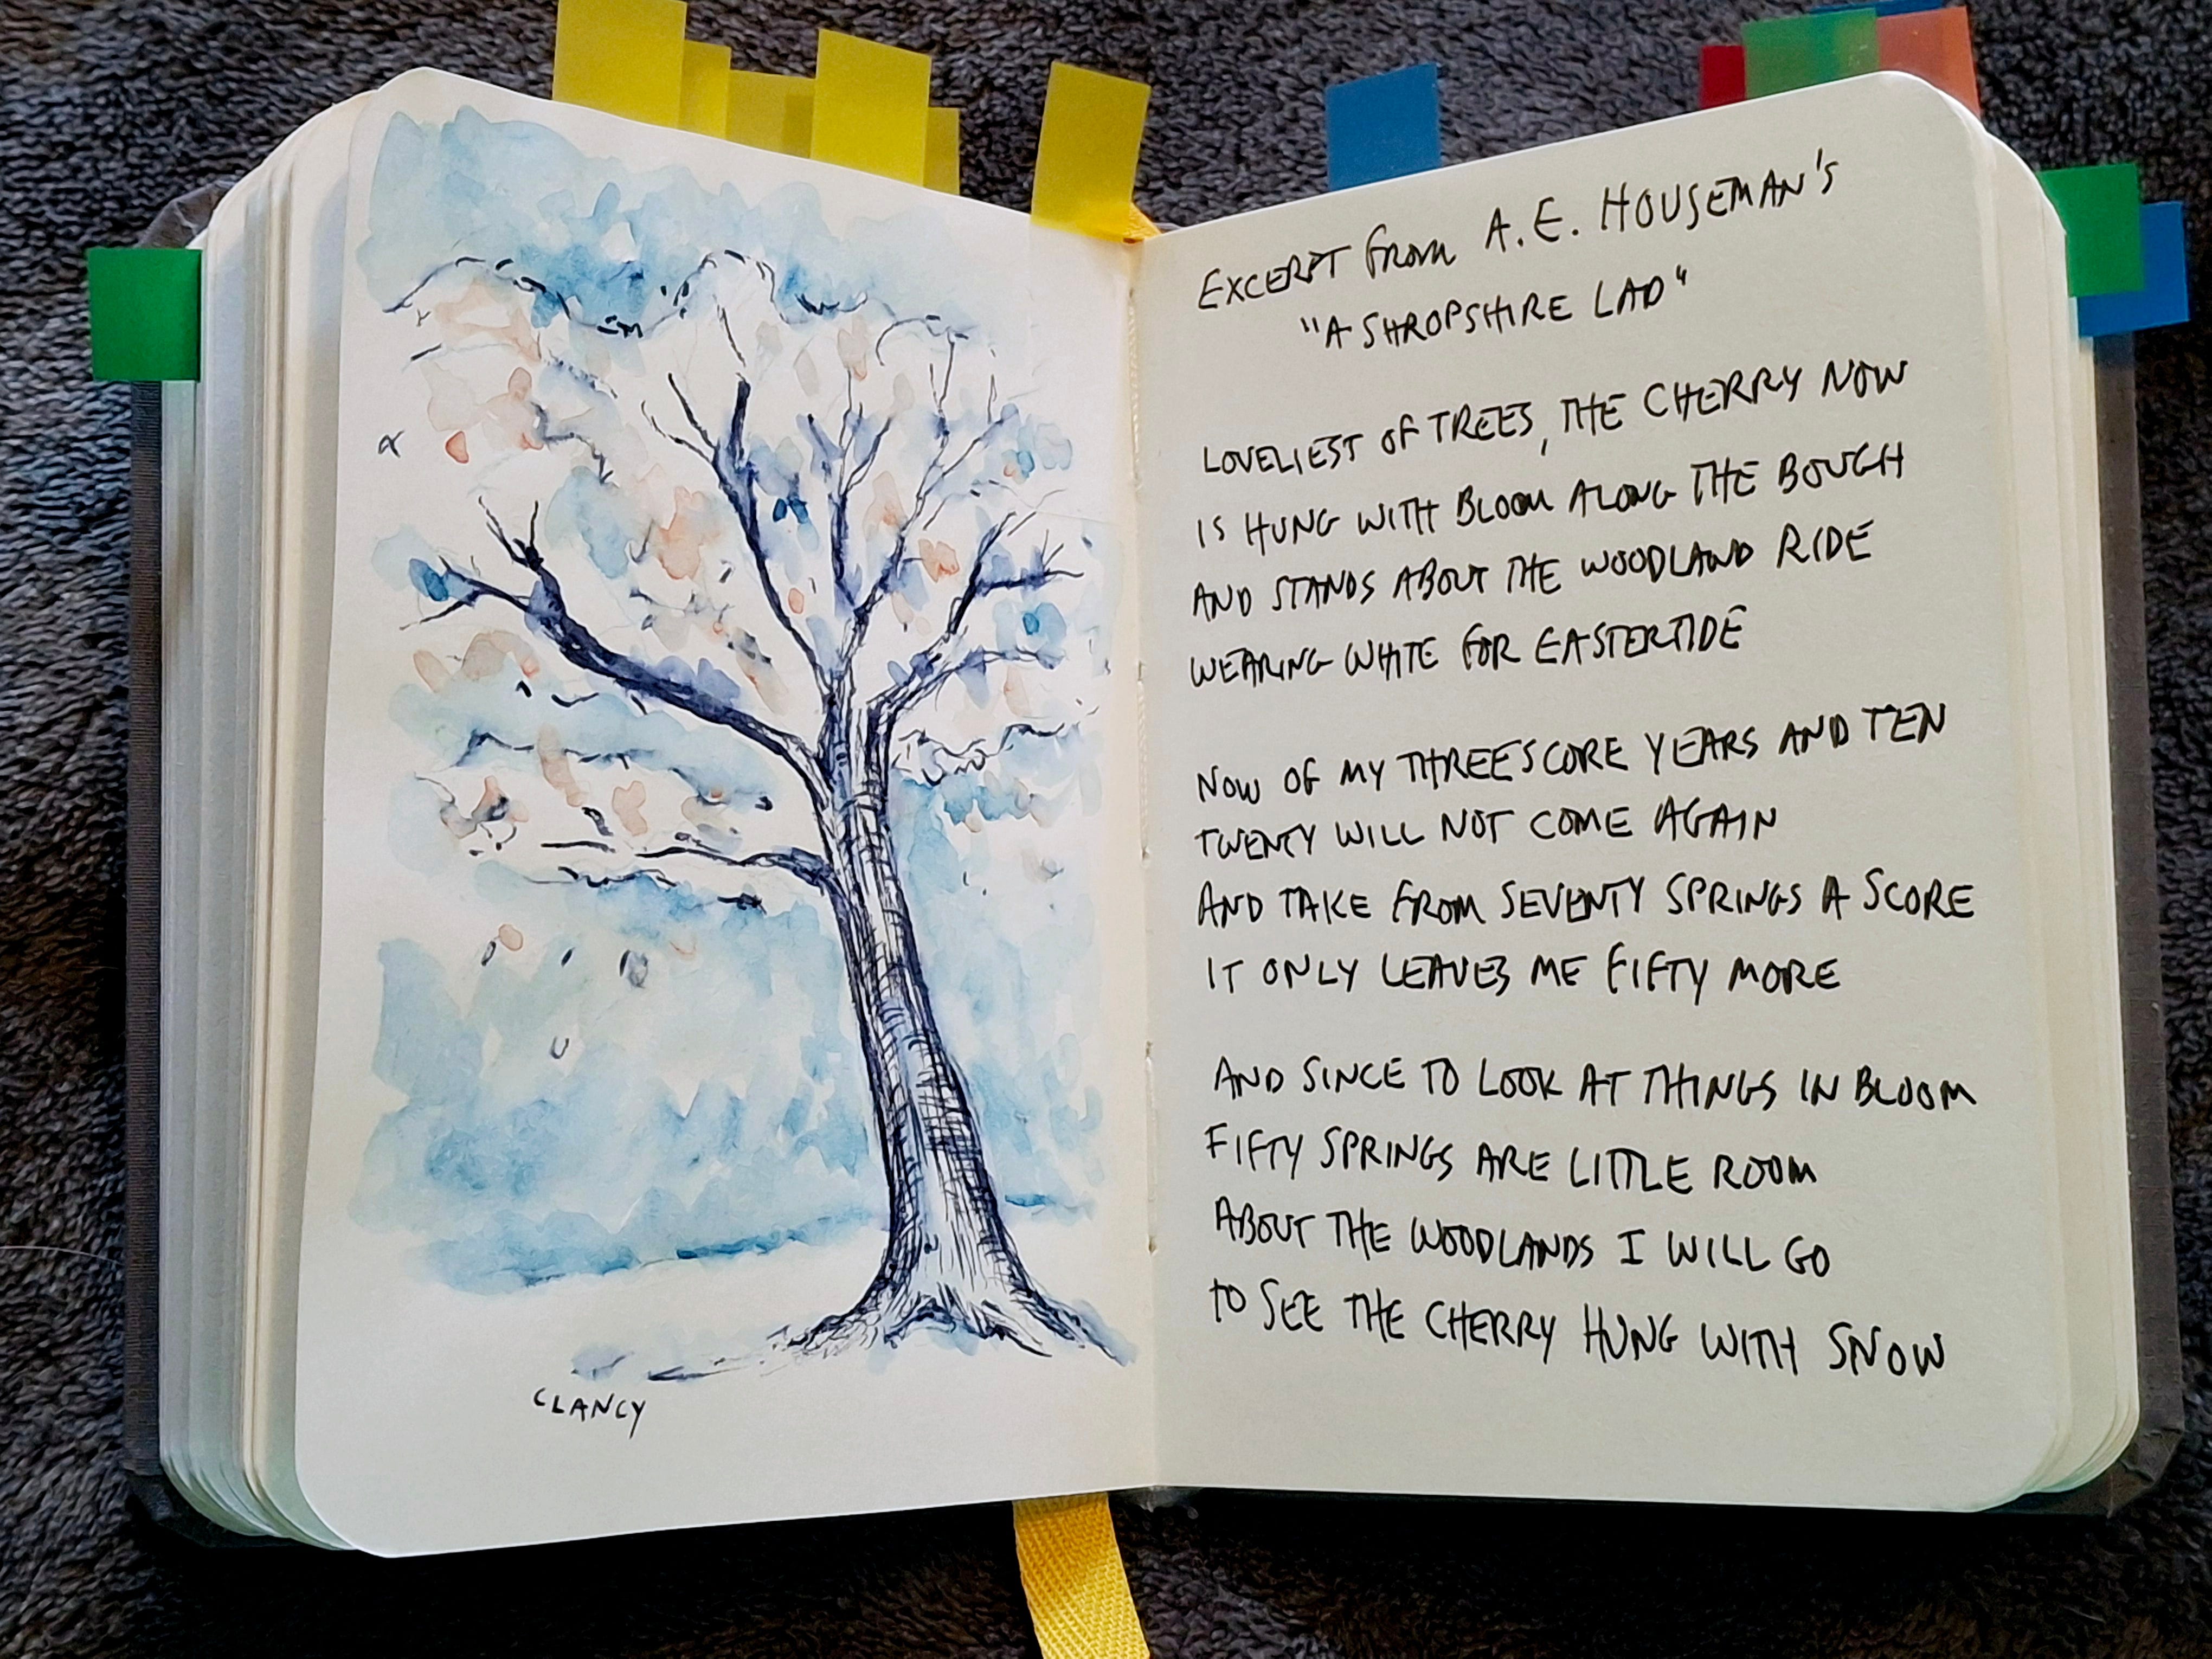 CLANCY
EXCERPT FROM A.E. HOUSEMAN'S
"A SHROPSHIRE LAD"
LOVELIEST OF TREES, THE CHERRY NOW
IS HUNG WITH BLOOM ALONG THE BOUGH
AND STANDS ABOUT THE WOODLAND RIDE
WEARING WHITE FOR EASTERTIDE
NOW OF MY THREESCORE YEARS AND TEN
TWENTY WILL NOT COME AGAIN
AND TAKE FROM SEVENTY SPRINGS A SCORE
IT ONLY LEAVES ME FIFTY MORE
AND SINCE TO LOOK AT THINGS IN BLOOM
FIFTY SPRINGS ARE LITTLE ROOM
ABOUT THE WOODLANDS I WILL GO
TO SEE THE CHERRY HUNG WITH SNOW